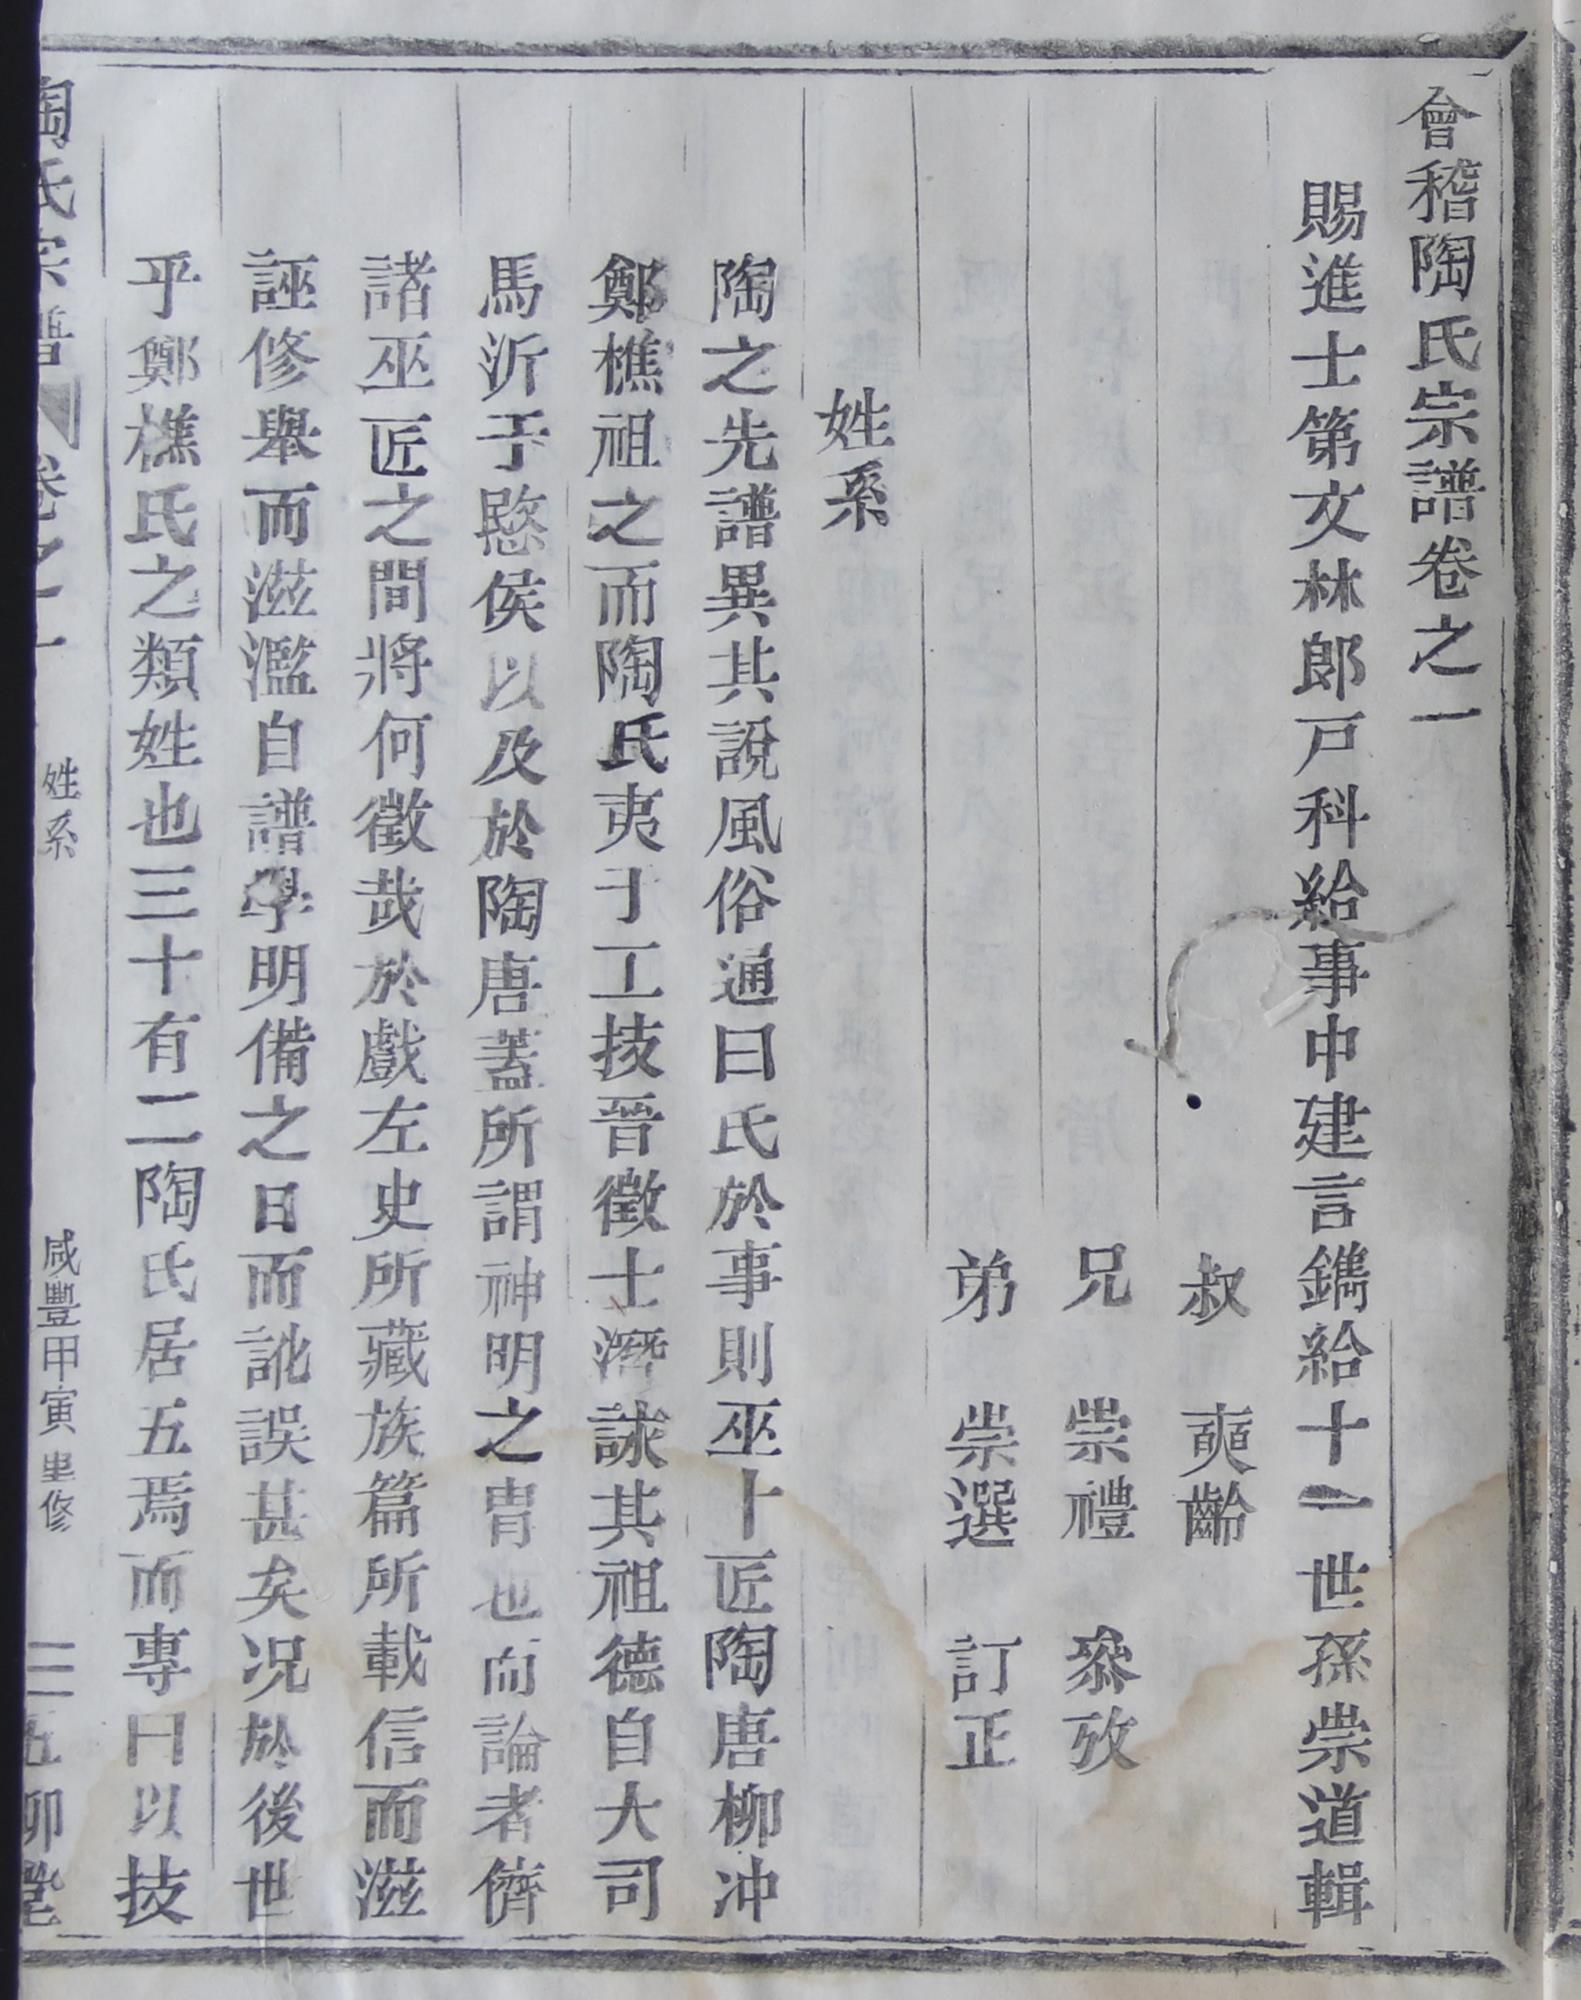 會稽陶氏宗譜卷之一
賜進士第文林郎戸科給事中建言鐫給十一世孫崇道輯
叔　奭齡
兄　崇禮　叅攷
弟　崇選　訂正
姓系
陶之先譜異其說風俗通曰氏於事則巫卜匠陶唐柳冲
鄭樵祖之而陶氏夷于工技晉徵士潛詠其祖德自大司
馬沂于愍侯以及於陶唐蓋所謂神明之胄也而論者儕
諸巫匠之間將何徵哉於戲左史所藏族篇所載信而滋
誣修舉而滋濫自譜學明備之日而訛誤甚矣况於後世
乎鄭樵氏之類姓也三十有二陶氏居五焉而專曰以技
陶氏宗譜　卷之一　姓系　咸豐甲寅重修　三　五柳堂